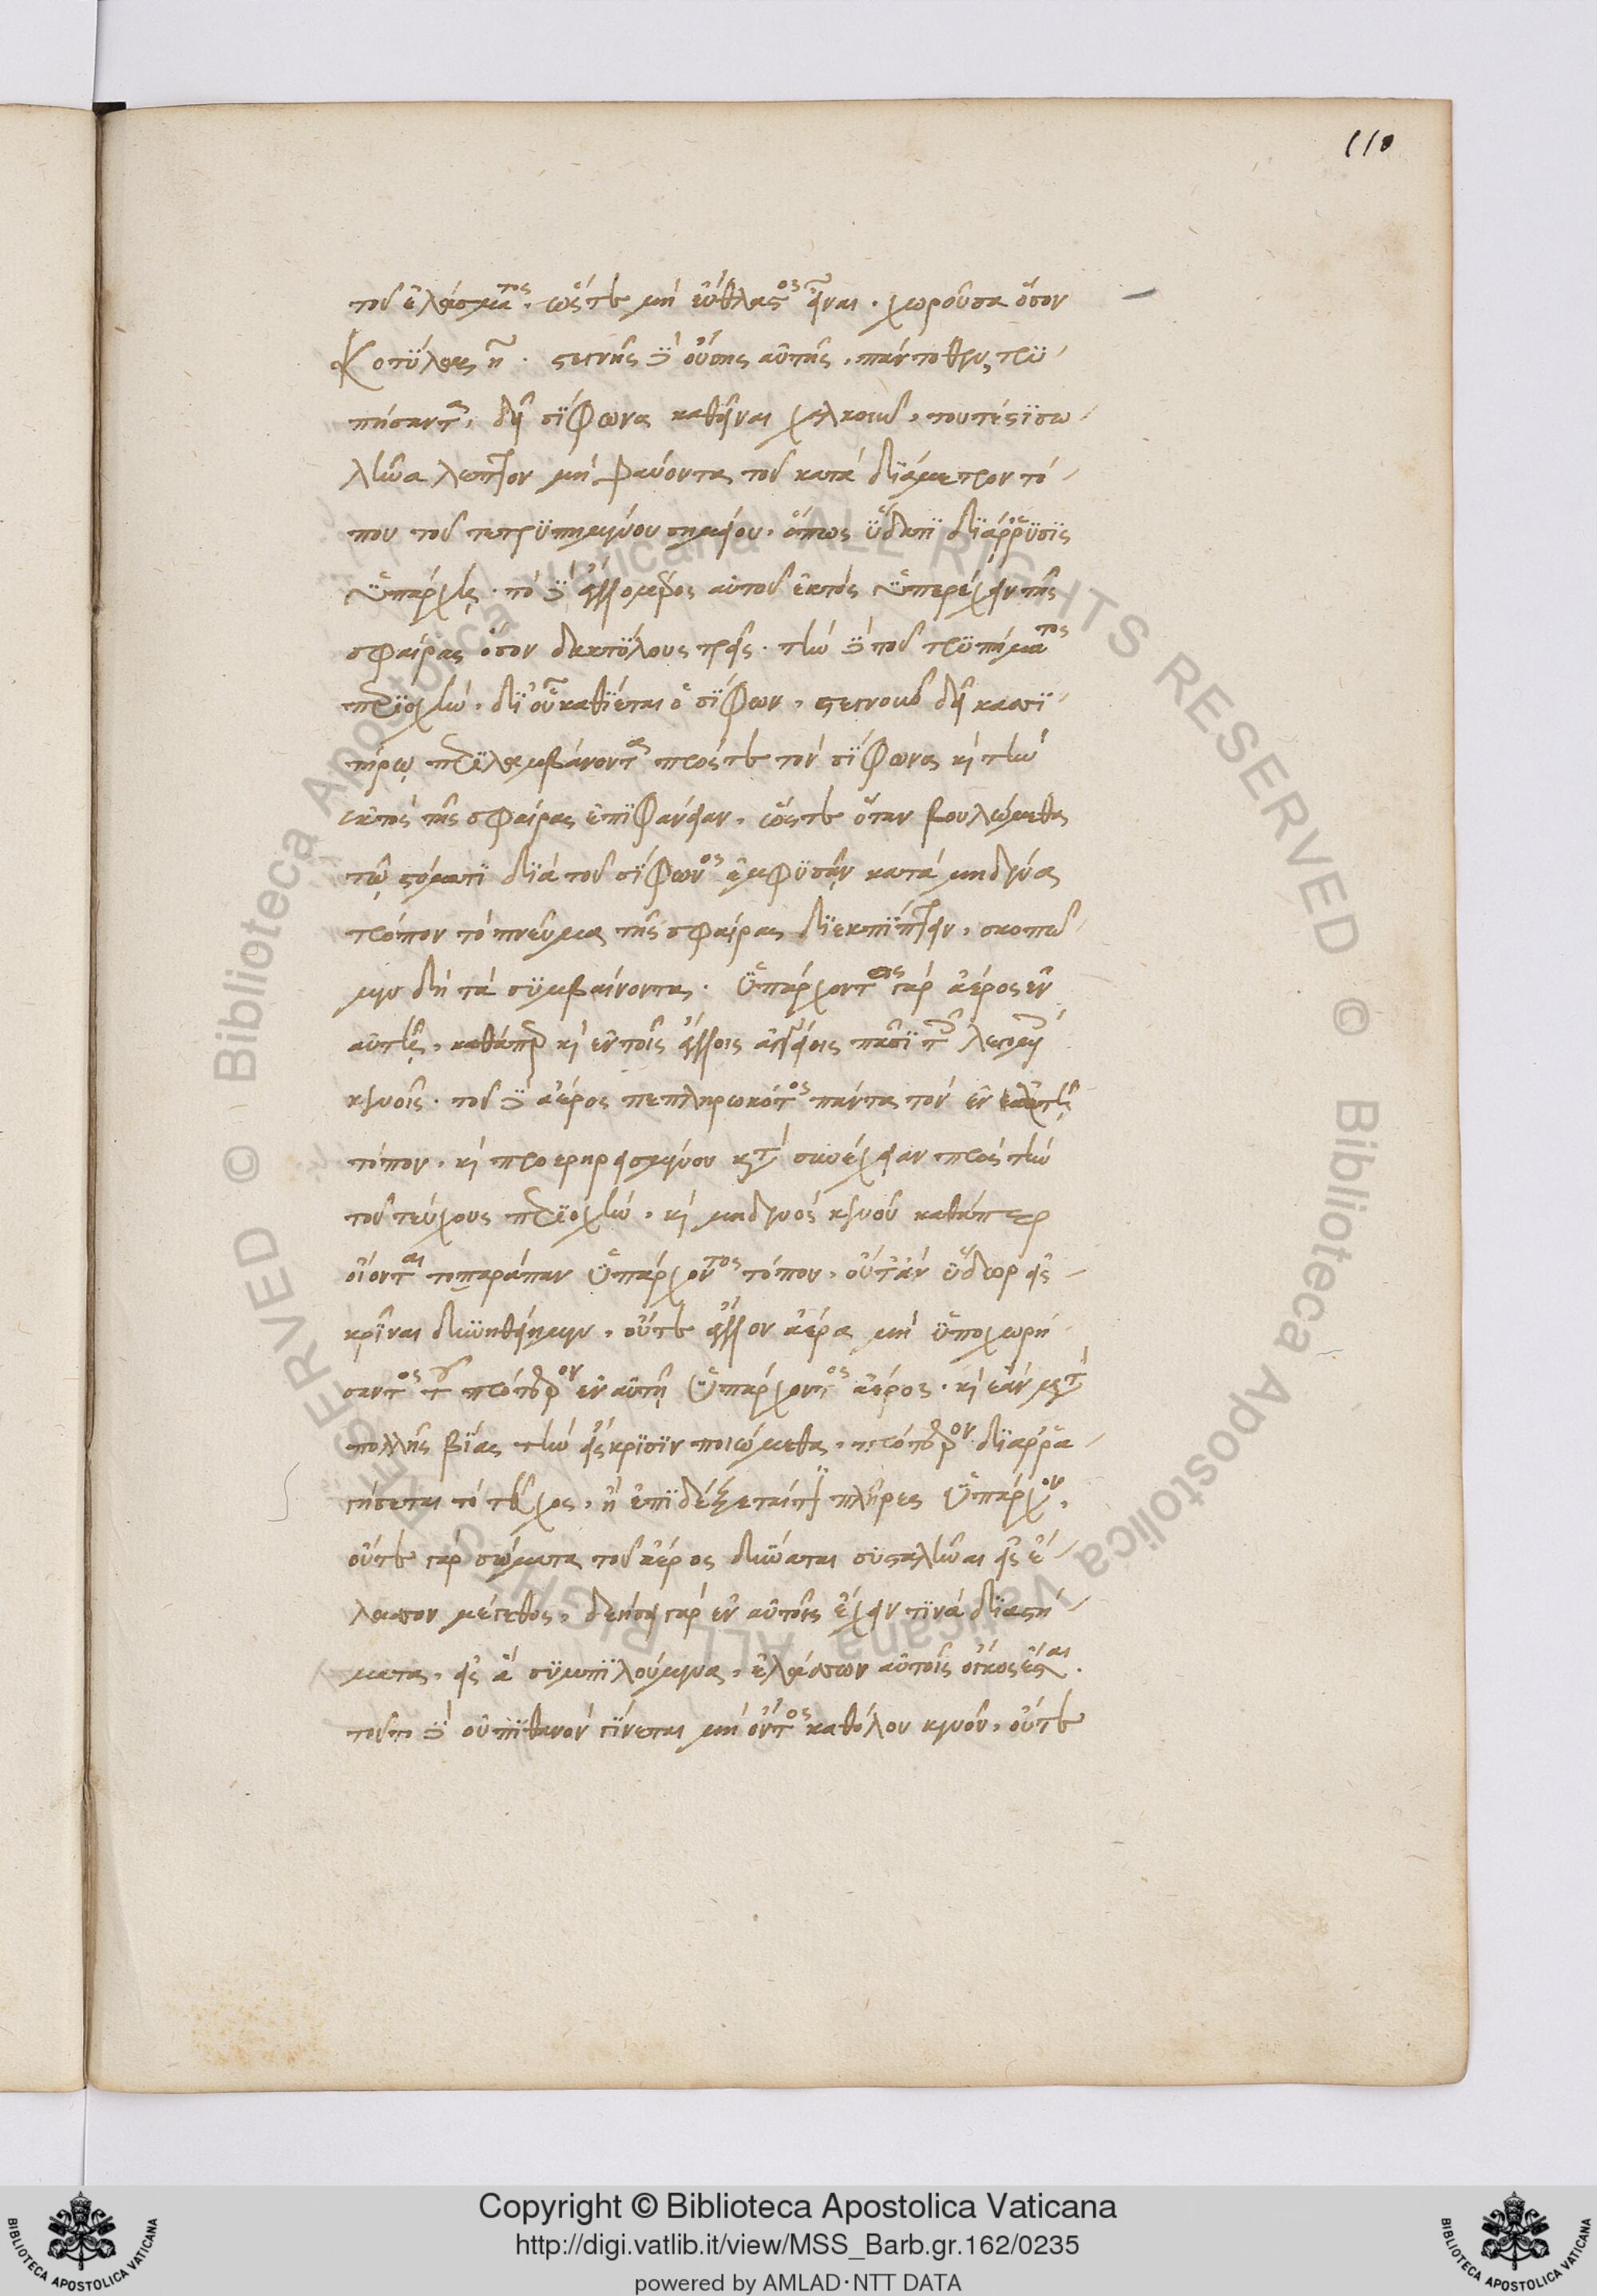 110
τοῦ ἐλάσματος. ὥστε μὴ εὔθλαστος εἶναι. χωροῦσα ὅσον
κοτύλας η. στεγνῆς δὲ οὔσης αὐτῆς πάντοθεν, τρυ-
πήσαντα, δεῖ σίφωνα καθεῖναι χαλκοῦν, τουτέστι σω-
λῆνα λεπτὸν μὴ ψαύοντα τοῦ κατὰ διάμετρον τό-
που τοῦ τετρυπημένου σημείου. ὅπως ὕδατι διάρρυσις
ὑπάρχῃ. τὸ δὲ ἄλλο μέρος αὐτοῦ ἐκτὸς ὑπερέχειν τῆς
σφαίρας ὅσον δακτύλους τρεῖς. τὴν δὲ τοῦ τρυπήματος
περιοχὴν, δι' οὗ καθίεται ὁ σίφων, στεγνοῦν δεῖ κασσι-
τήρῳ περιλαμβάνοντα πρός τε τὸν σίφωνα καὶ τὴν
ἐκτὸς τῆς σφαίρας ἐπιφάνειαν. ὥστε ὅταν βουλώμεθα
τῷ στόματι διὰ τοῦ σίφωνος ἐμφυσᾶν κατὰ μηδένα
τρόπον τὸ πνεῦμα τῆς σφαίρας διεκπίπτειν. σκοπῶ-
μεν δὴ τὰ συμβαίνοντα. ὑπάρχοντος γὰρ ἀέρος ἐν
αὐτῇ, καθάπερ καὶ ἐν τοῖς ἄλλοις ἀγγείοις πᾶσι τοῖς λεγομένοις
κενοῖς. τοῦ δὲ ἀέρος πεπληρωκότος πάντα τὸν ἐν αὐτῇ
τόπον. καὶ προσερηρεισμένου κατὰ συνέχειαν πρὸς τὴν
τοῦ τεύχους περιοχὴν. καὶ μηδενὸς κενοῦ καθάπερ
οἴονται τοπαράπαν ὑπάρχοντος τόπου. οὔτ' ἂν ὕδωρ εἰσ-
κρῖναι δυνηθείημεν. οὔτε ἄλλον ἀέρα μὴ ὑποχωρή-
σαντος τοῦ πρότερον ἐν αὐτῇ ὑπάρχοντος ἀέρος. καὶ ἐὰν μετὰ
πολλῆς βίας τὴν εἴσκρισιν ποιώμεθα, πρότερον διαρρα-
γήσεται τὸ τεῦχος, ἢ ἐπιδέξεταί τι πλῆρες ὑπάρχον.
οὔτε γὰρ σώματα τοῦ ἀέρος δύναται συσταλῆναι εἰς ἔ-
λαττον μέγεθος. δεήσει γὰρ ἐν αὐτοῖς ἔχειν τινὰ διαστή-
ματα. εἰς ἃ συμπιλούμενα, ἐλάσσων αὐτοῖς ὄγκος ἔσται.
τοῦτο δὲ οὐ πιθανὸν γίνεται μὴ ὄντος καθόλου κενοῦ. οὔτε
© Biblioteca Apostolica Vaticana ALL RIGHTS RESERVED
Copyright © Biblioteca Apostolica Vaticana
http://digi.vatlib.it/view/MSS_Barb.gr.162/0235
powered by AMLAD·NTT DATA
BIBLIOTECA APOSTOLICA VATICANA
BIBLIOTECA APOSTOLICA VATICANA